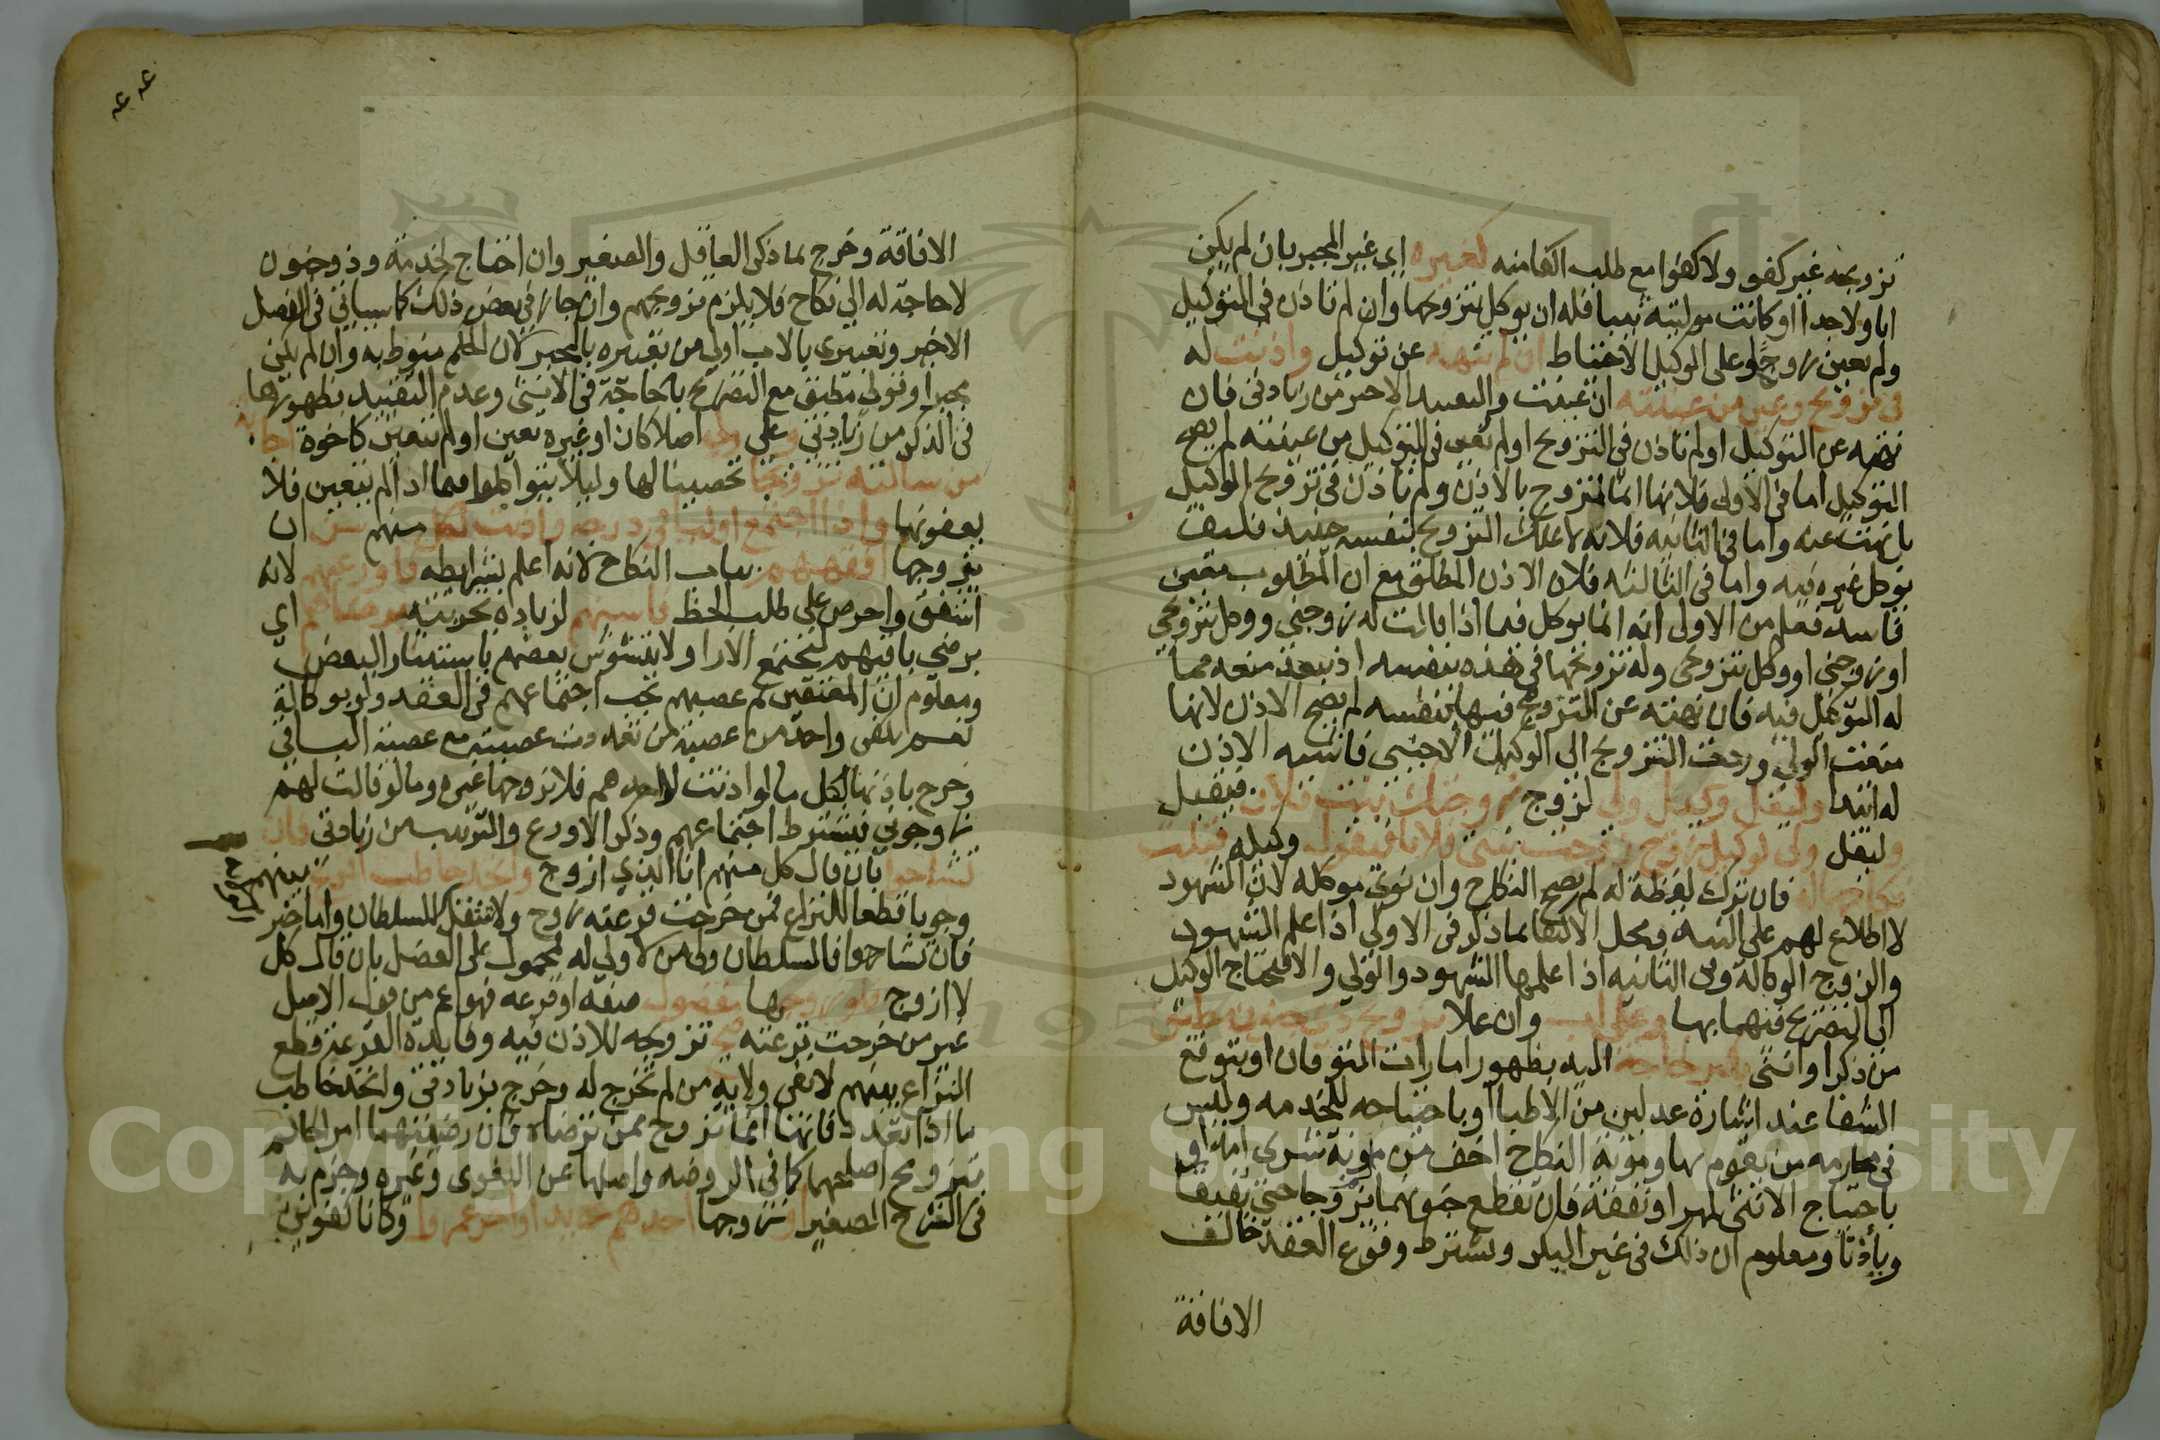 تزويجه غير كفو ولا كفؤا مع طلب اكفا منه كغيره اي غير المجبر بان لم يكن
ابا ولا جدا او كانت موليته ثيبا فله ان يوكل بتزوجها وان لم تاذن في التوكيل
ولم يعين زوج وعلى الوكيل الاحتياط ان لم تنهه عن توكيل واذنت له
في تزويج وعين من عينته ان عينت والتقييد الاخير من زيادتي فان
نهته عن التوكيل او لم تاذن في التزويج او لم يعين في التوكيل من عينته لم يصح
التوكيل اما في الاولى فلانها انما تتزوج بالاذن ولم تاذن في تزويج الوكيل
بل نهت عنه واما في الثانيه فلانه لا يملك التزويج بنفسه حينئذ فكيف
يوكل غيره فيه واما في الثالثه فلان الاذن المطلق مع ان المطلوب معين
فاسد فعلم من الاولى انه انما يوكل فيما اذا قالت له زوجني ووكل بتزويجي
او زوجني او وكل بتزويجي وله تزويجها في هذه بنفسه اذ يبعد منعه مما
له التوكيل فيه فان نهته عن التزويج فيها بنفسه لم يصح الاذن لانها
منعت الولي وردت التزويج الى الوكيل الاجنبي فاشبه الاذن
له ابتدا وليقل وكيل ولي لزوج زوجتك بنت فلان فيقبل
وليقل ولي لوكيل زوج زوجت بنتي فلانا فيقول وكيله قبلت
نكاحها له فان ترك لفظة له لم يصح النكاح وان نوى موكله لان الشهود
لا اطلاع لهم على النيه ومحل الاكتفا بما ذكر في الاولى اذا علم الشهود
والزوج الوكالة وفي الثانيه اذا علمها الشهود والولي والا فيحتاج الوكيل
الى التصريح فيهما بها وعلى اب وان علا تزويج ذي جنون مطبق
من ذكر او انثى بكبر حاجة اليه بظهور امارات التوقان او بتوقع
الشفا عند اشارة عدلين من الاطبا او باحتياجه للخدمه وليس
في محارمه من يقوم بها ومؤنة النكاح اخف من مؤنة شرى امة او
باحتياج الانثى لمهر او نفقة فان تقطع جنونهما لم يزوجا حتى يفيقا
وياذنا ومعلوم ان ذلك في غير البكر ويشترط وقوع العقد حالة
الافاقة
الافاقة وخرج بما ذكر العاقل والصغير وان احتاج لخدمة وذو جنون
لا حاجة له الى نكاح فلا يلزم تزويجهم وان جاز في بعض ذلك كما سياتي في الفصل
الاخير وتعبيري بالاب اولى من تعبيره بالمجبر لان الحكم منوط به وان لم يكن
مجبرا وقولي مطبق مع التصريح بالحاجة في الانثى وعدم التقييد بظهورها
في الذكر من زيادتي وعلى ولي اصلا كان او غيره تعين او لم يتعين كاخوة اجابة
من سالته تزويجا تحصينا لها وليلا يتواكلوا فيما اذا لم يتعين فلا
يعفونها واذا اجتمع اوليا في درجه واذنت لكل منهم سن ان
يزوجها افقههم بباب النكاح لانه اعلم بشرايطه فاورعهم لانه
اشفق واحرص على طلب الحظ فاسنهم لزياده تجربته برضاهم اي
برضى باقيهم لتجتمع الارا ولا يتشوش بعضهم باستيثار البعض
ومعلوم ان المعتقين ثم عصبتهم يجب اجتماعهم في العقد ولو بوكالة
نعم يكفي واحد من عصبة من تعددت عصبته مع عصبة الباقي
وخرج باذنها لكل ما لو اذنت لاحدهم فلا يزوجها غيره وما لو قالت لهم
زوجوني فيشترط اجتماعهم وذكر الاورع والترتيب من زيادتي فان
تشاحوا بان قال كل منهم انا الذي ازوج واتحد خاطب اقرع بينهم
وجوبا قطعا للنزاع فمن خرجت قرعته زوج ولا تنتقل للسلطان واما خبر
فان تشاحوا فالسلطان ولي من لا ولي له محمول على العضل بان قال كل
لا ازوج فلو زوجها مفضول صفة او قرعه فهو اعم من قول الاصل
غير من خرجت قرعته صح تزويجه للاذن فيه وفايدة القرعة قطع
النزاع بينهم لا نفي ولاية من لم تخرج له وخرج بزيادتي واتحد خاطب
ما اذا تعدد فانها انما تزوج ممن ترضاه فان رضيتهما امر الحاكم
بتزويج اصلحهما كما في الروضه واصلها عن البغوى وغيره وجزم به
في الشرح الصغير او زوجها احدهم زيدا واخر عمروا وكانا كفوين